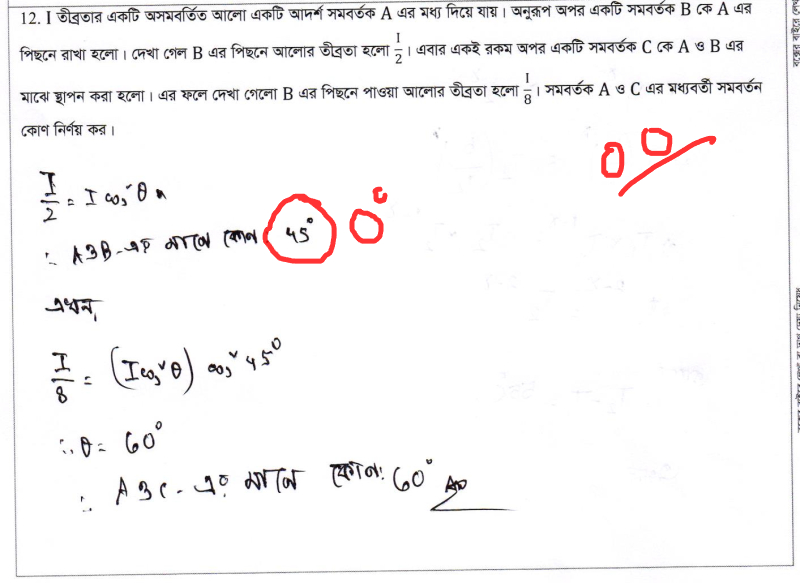 12. I তীব্রতার একটি অসমবর্তিত আলো একটি আদর্শ সমবর্তক A এর মধ্য দিয়ে যায়। অনুরূপ অপর একটি সমবর্তক B কে A এর
পিছনে রাখা হলো। দেখা গেল B এর পিছনে আলোর তীব্রতা হলো I/2। এবার একই রকম অপর একটি সমবর্তক C কে A ও B এর
মাঝে স্থাপন করা হলো। এর ফলে দেখা গেলো B এর পিছনে পাওয়া আলোর তীব্রতা হলো I/8। সমবর্তক A ও C এর মধ্যবর্তী সমবর্তন
কোণ নির্ণয় কর।
00
I/2 = I cos²θ
∴ A ও B - এর মাঝে কোন 45° 0°
এখন,
I/8 = (I cos²θ) cos² 45°
∴ θ = 60°
∴ A ও C - এর মাঝে কোন: 60°